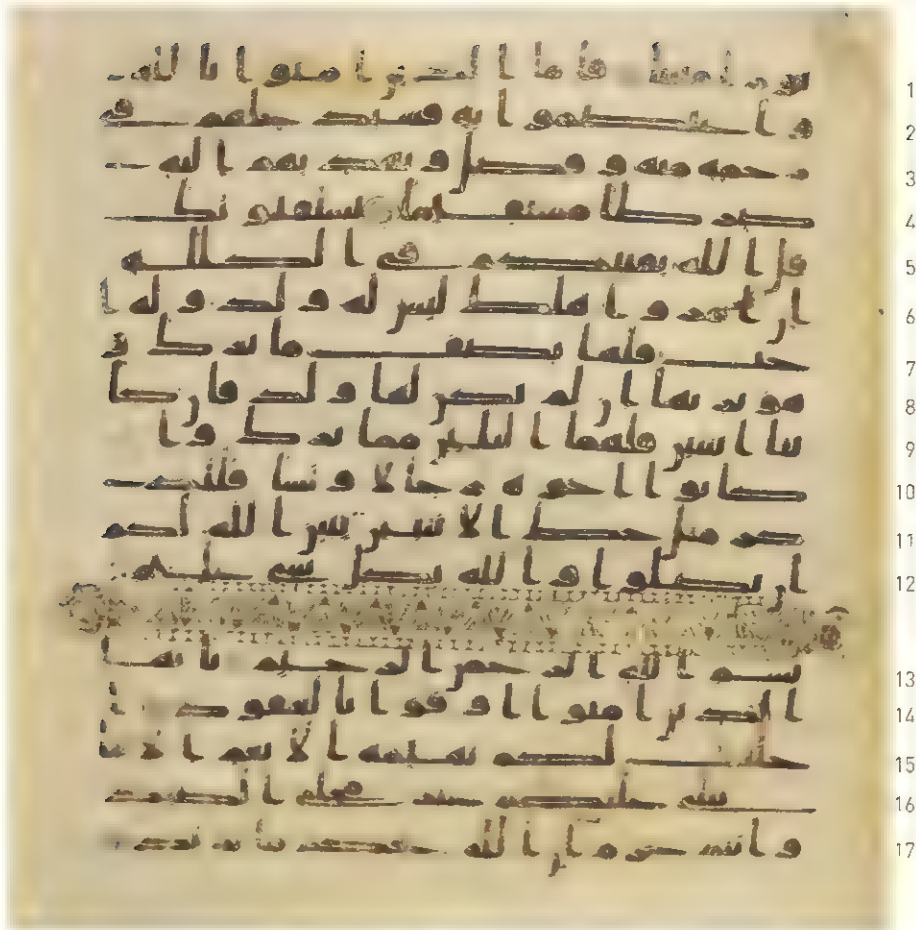 نورا مبينا فاما الذين امنوا بالله 1
و اعتصموا به فسيدخلهم في 2
رحمه منه و فضل و يهديهم اليه 3
صرطا مستقيما يستفتونك 4
قل الله يفتيكم في الكلله 5
ان امروا هلك ليس له ولد و له ا 6
خت فلها نصف ما ترك و 7
هو يرثها ان لم يكن لها ولد فان كا 8
نتا اثنتين فلهما الثلثن مما ترك و ان 9
كانوا اخوه رجالا و نسا فللذ 10
كر مثل حظ الانثيين يبين الله لكم 11
ان تضلوا و الله بكل شي عليم 12
بسم الله الرحمن الرحيم يايها 13
الذين امنوا اوفوا بالعقود ا 14
حلت لكم بهيمه الانعم الا ما 15
يتلى عليكم غير محلي الصيد 16
و انتم حرم ان الله يحكم ما يريد 17